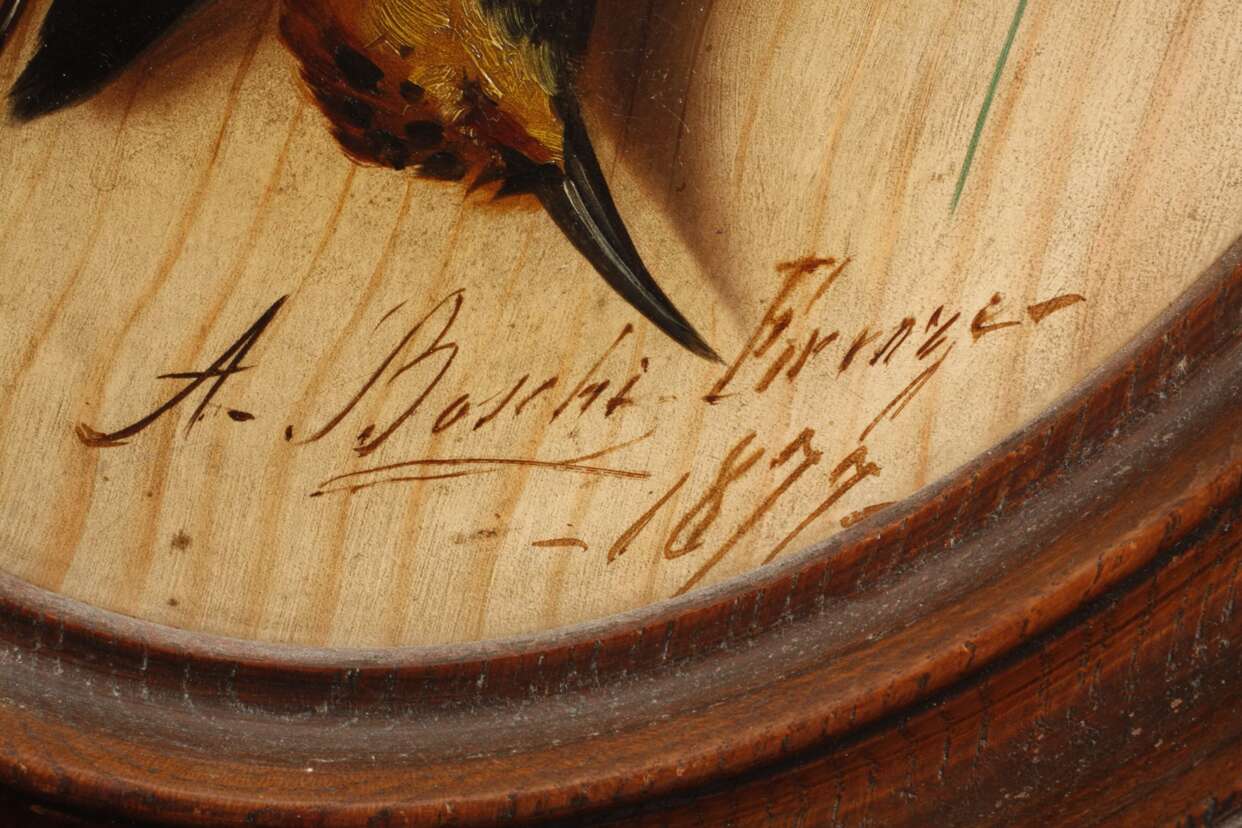 A. Boschi - Firenze -
- 1877 -